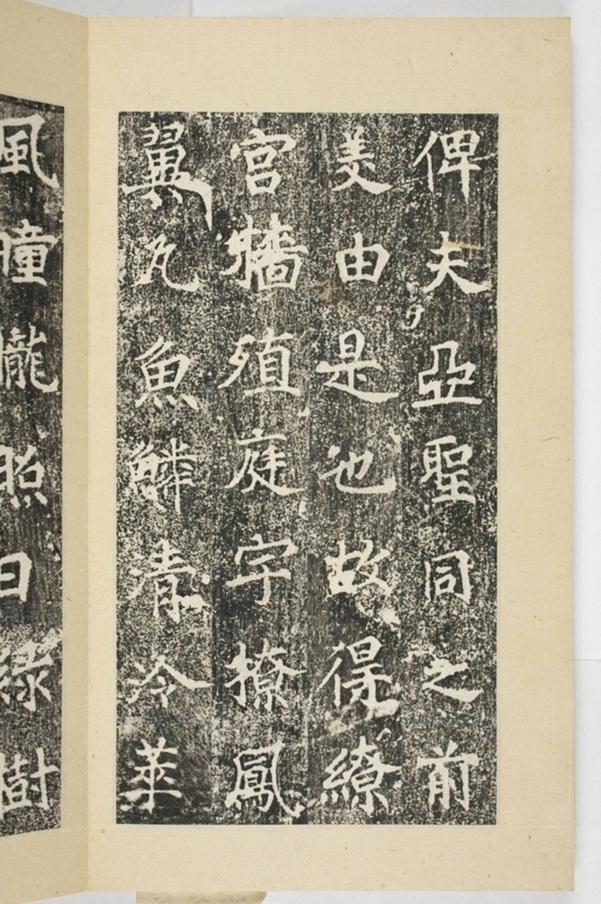 俾夫亞聖同之前
美由是也故得繚
宮牆殖庭宇撩鳳
翼丸魚鱗青冷葉
風曈曨照日綠樹